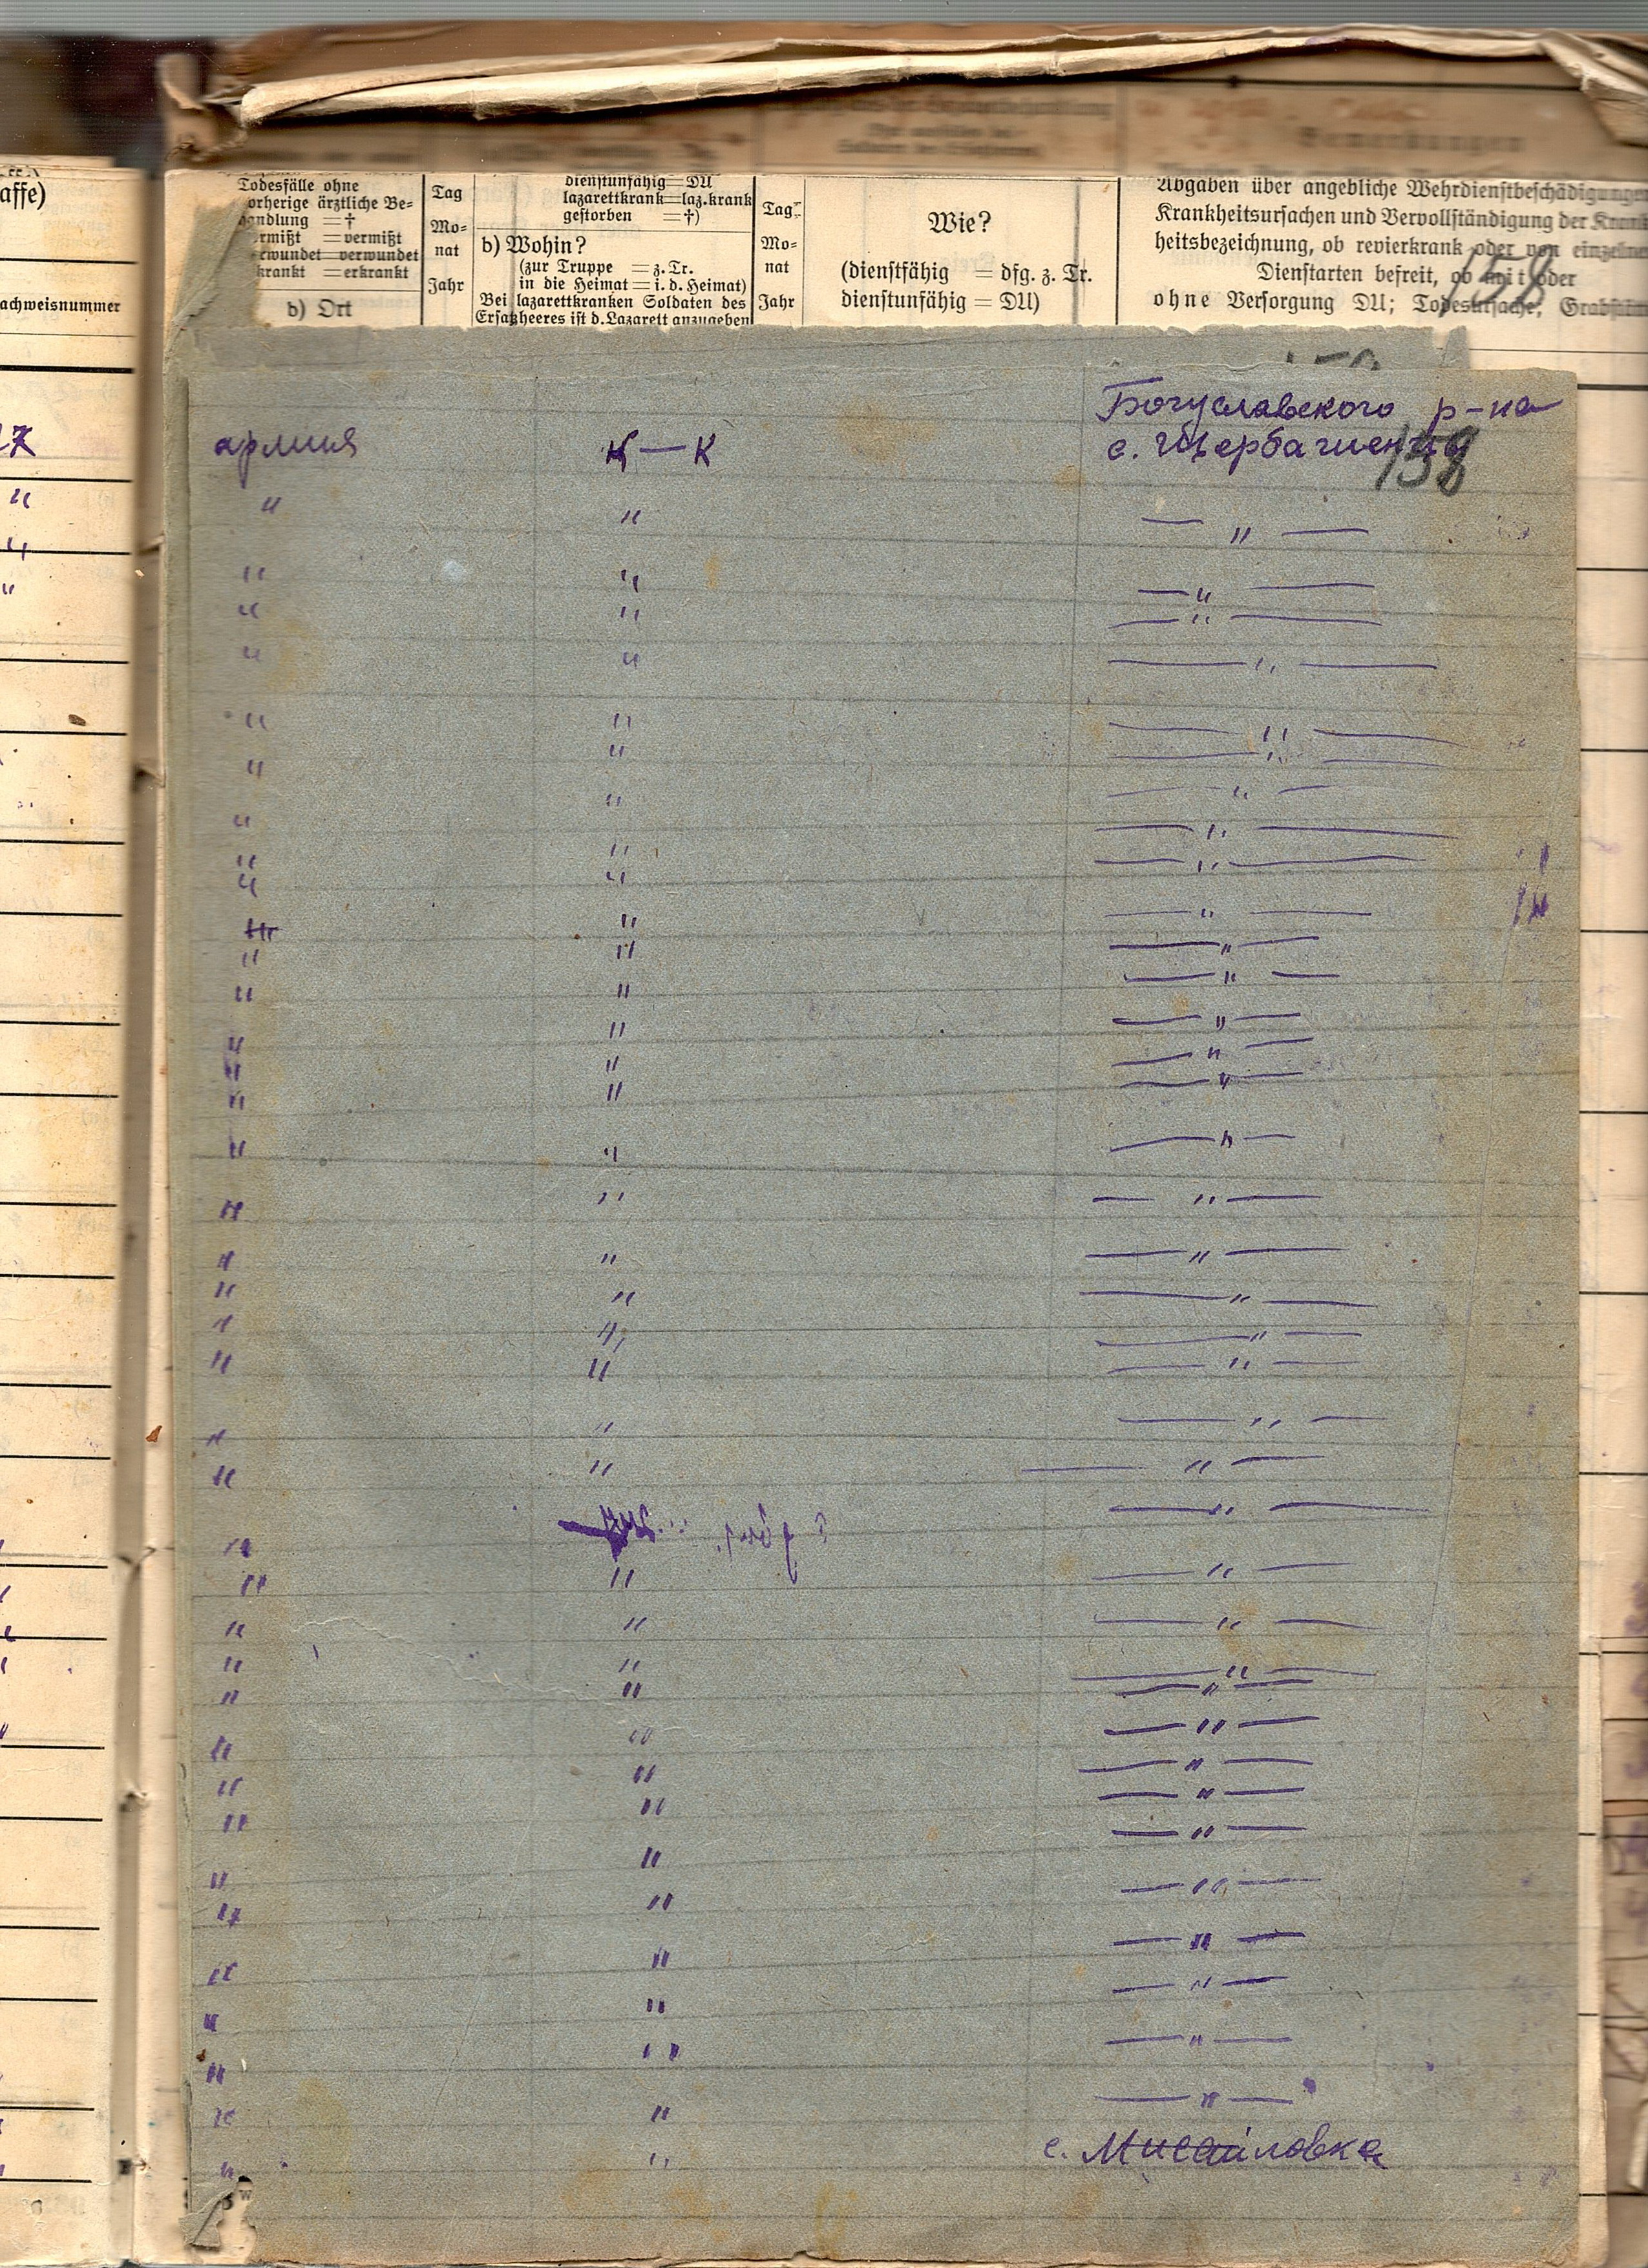 affe)
achweisnummer
Todesfälle ohne
orherige ärztliche Be-
andlung = †
rmißt = vermißt
ewundet = verwundet
krankt = erkrankt
b) Ort
Tag
Mo-
nat
Jahr
dienstunfähig = DU
lazarettkrank = laz.krank
gestorben = †)
b) Wohin?
(zur Truppe = z. Tr.
in die Heimat = i. d. Heimat)
Bei lazarettkranken Soldaten des
Ersatzheeres ist d. Lazarett anzugeben
Tag
Mo-
nat
Jahr
Wie?
(dienstfähig = dfg. z. Tr.
dienstunfähig = DU)
Abgaben über angebliche Wehrdienstbeschädigungen
Krankheitsursachen und Vervollständigung der Krank-
heitsbezeichnung, ob revierkrank oder von einzelnen
Dienstarten befreit, ob mit oder
ohne Versorgung DU; Todesursache,
158
Богуславского р-на
армия К—К с. Щербашенці
158
" " — " —
" " — " —
" " — " —
" " — " —
" " — " —
" " — " —
" " — " —
" " — " —
" " — " —
" " — " —
" " — " —
" " — " —
" " — " —
" " — " —
" " — " —
" " — " —
" " — " —
" " — " —
" " — " —
" " — " —
" " — " —
" " — " —
" " — " —
" " — " —
" — " —
" " — " —
" " — " —
" " — " —
" " — " —
" " — " —
" " — " —
" " — " —
" " — " —
" " — " —
" " — " —
" " — " —
" " — " —
" " — " —
" " с. Мисайловка